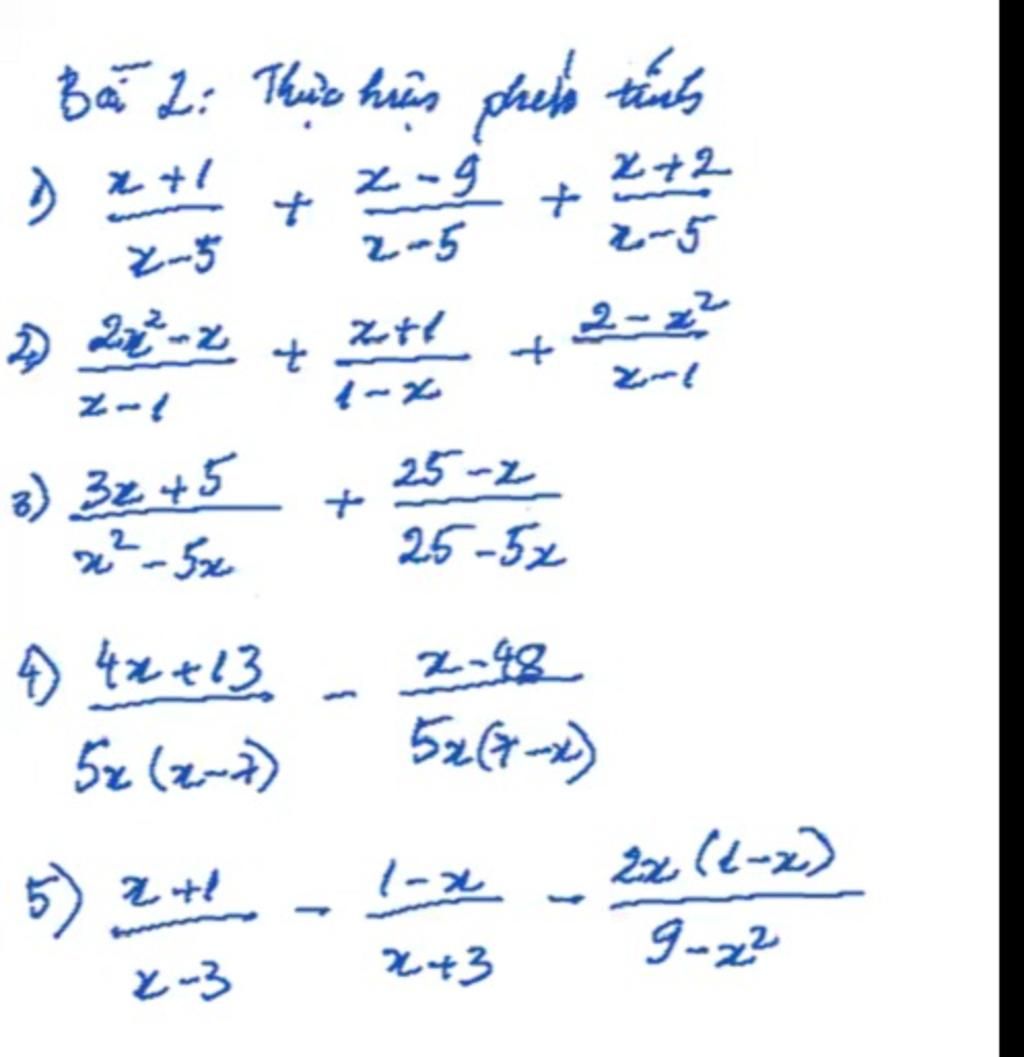 Bài 2: Thực hiện phép tính
1) \frac{x+1}{x-5} + \frac{x-9}{x-5} + \frac{x+2}{x-5}
2) \frac{2x^2-x}{x-1} + \frac{x+1}{1-x} + \frac{2-x^2}{x-1}
3) \frac{3x+5}{x^2-5x} + \frac{25-x}{25-5x}
4) \frac{4x+13}{5x(x-7)} - \frac{x-48}{5x(7-x)}
5) \frac{x+1}{x-3} - \frac{1-x}{x+3} - \frac{2x(1-x)}{9-x^2}